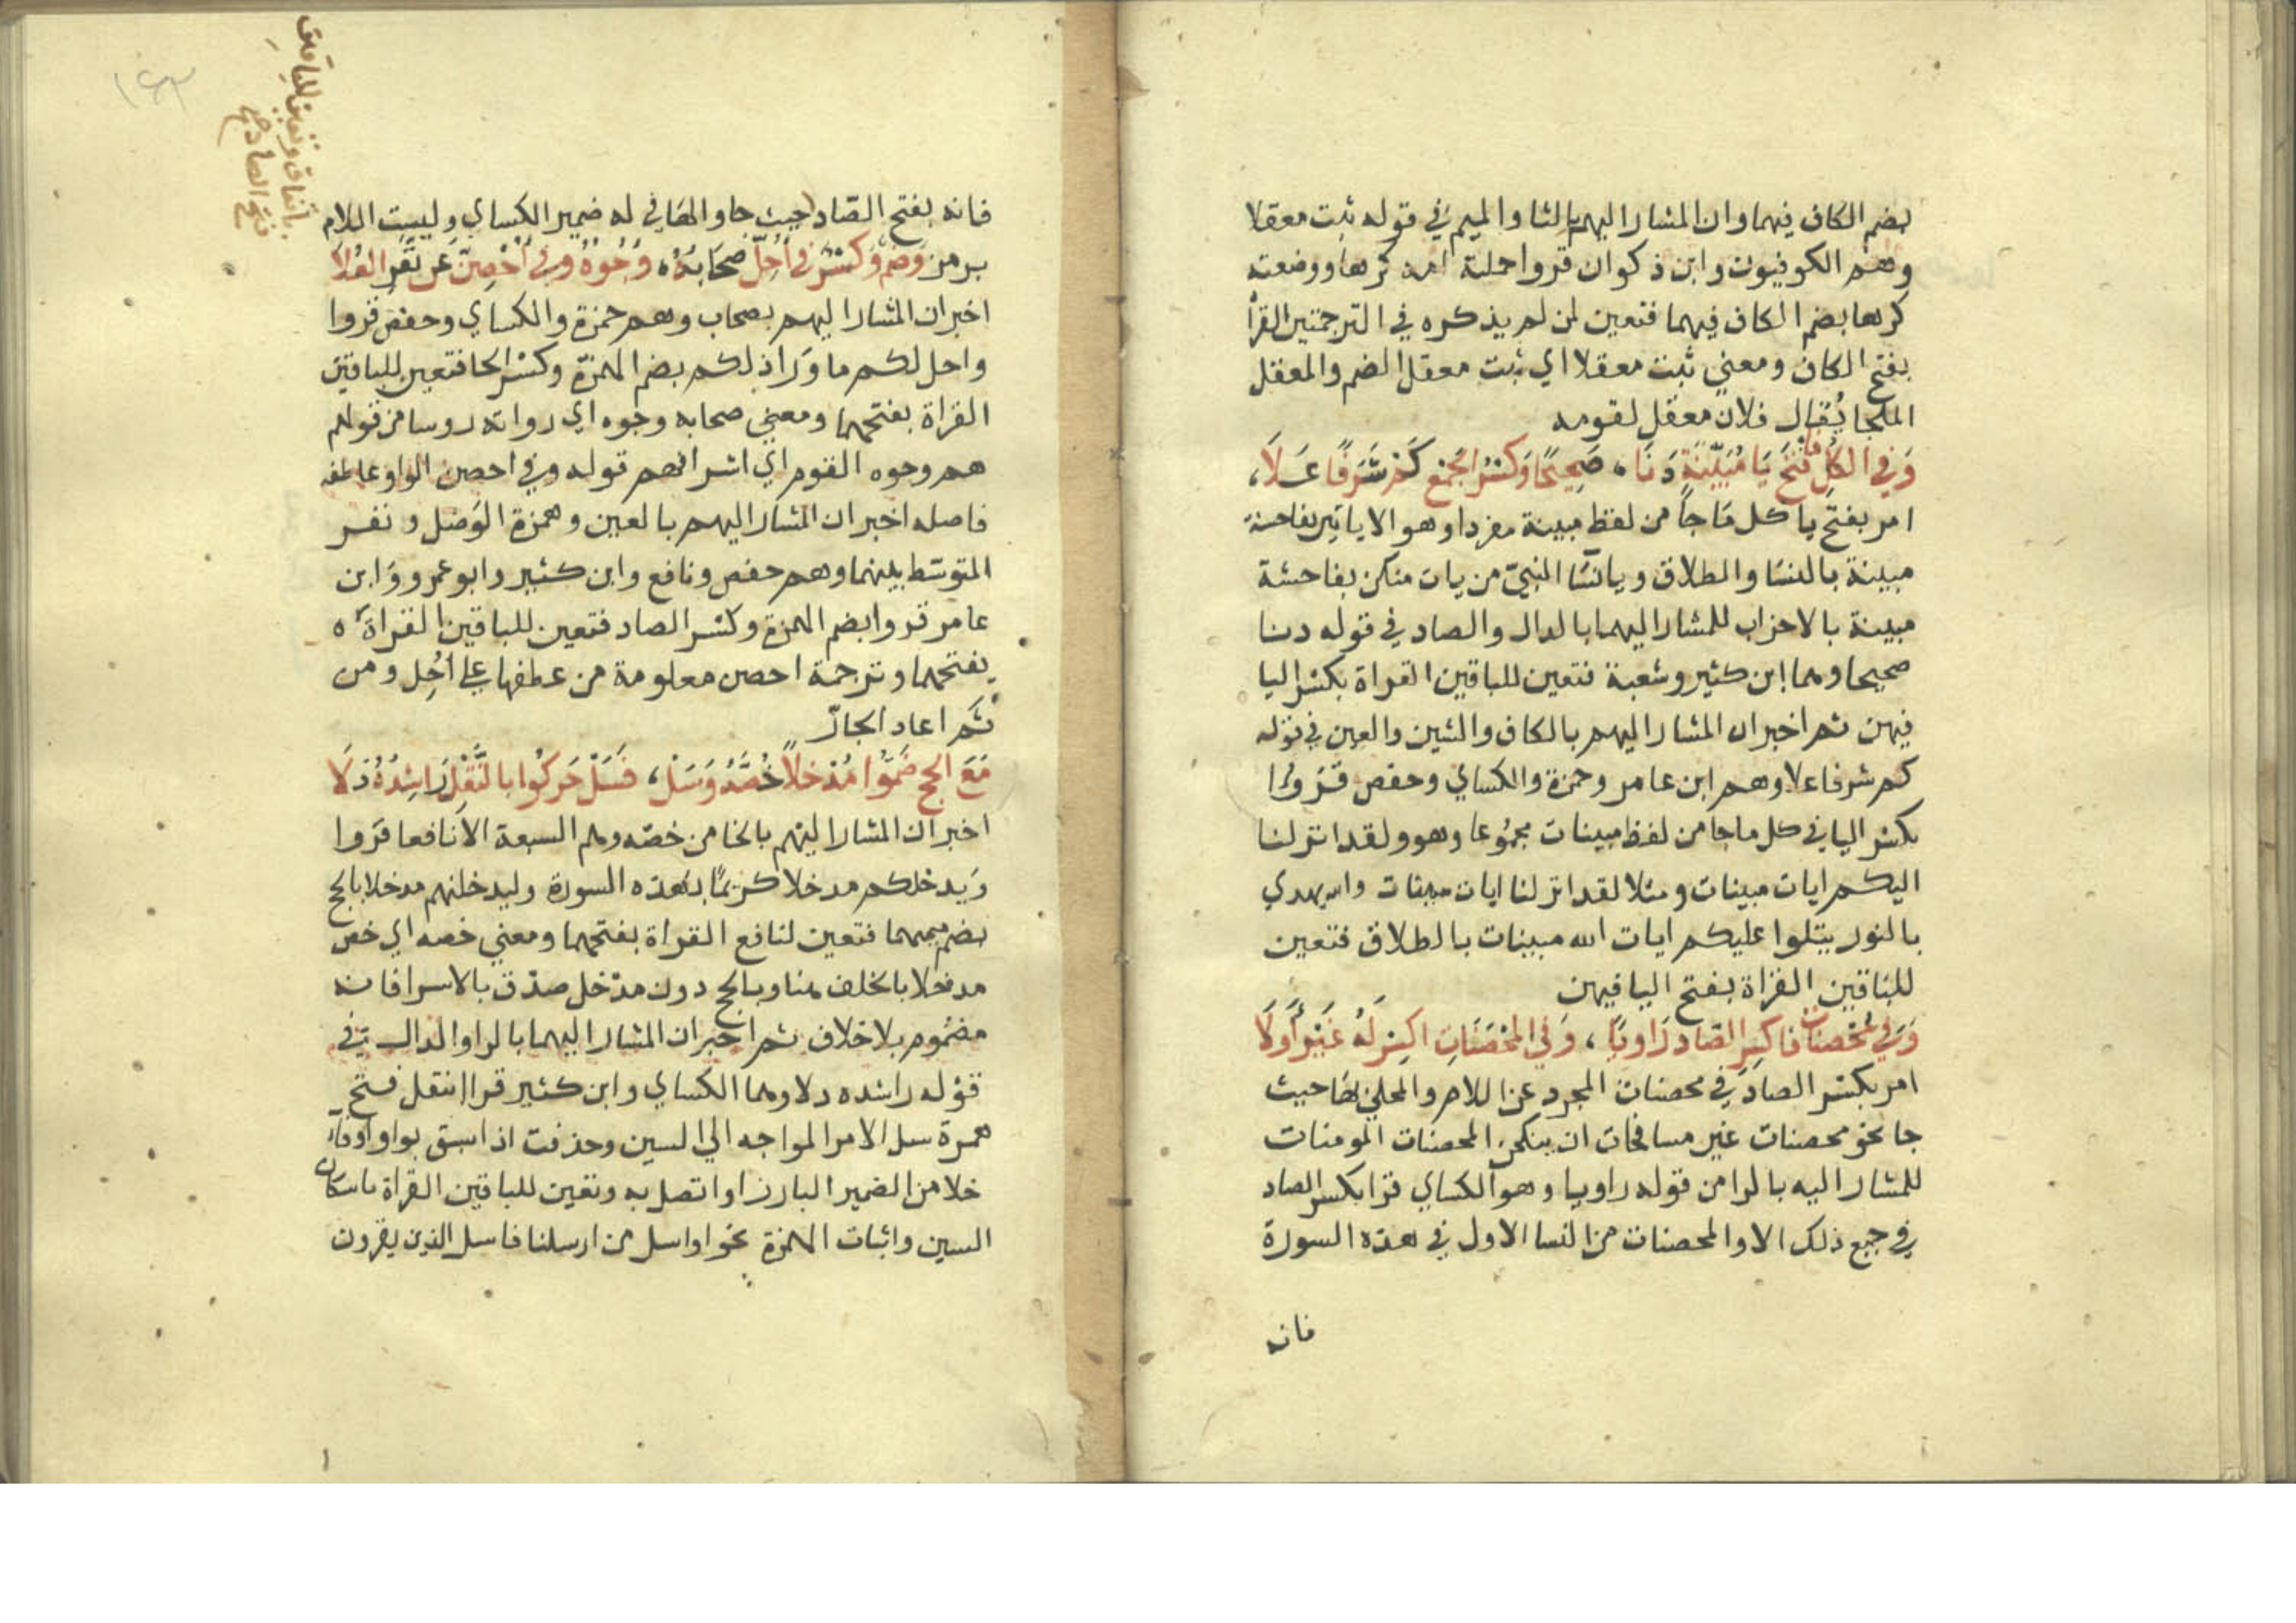 بضم الكاف فيهما وان المشار اليهم بالثا والميم في قوله ثبت معقلا
وهم الكوفيون وابن ذكوان قروا حملته امه كرها ووضعته
كرها بضم الكاف فيهما فتعين لمن لم يذكره في الترجمتين القرأ
بفتح الكاف ومعني ثبت معقلا اي ثبت معقل الضم والمعقل
الملجا يُقال فلان معقل لقومه
وَفي الكُلِّ فافتَح يَا مُبَيِّنَةٍ دَنَا، صَحِيحًا وَكَسْرُ الجمْع كَمْ شَرَفًا عَلَا،
امر بفتح يا كل مَا جاً من لفظ مبينة مفردا وهو الا ياتين بفاحشة
مبينة بالنسَا والطلاق ويا نسَا النبيّ من يات منكن بفاحشة
مبينة بالاحزاب للمشار اليهما بالدال والصاد في قوله دنا
صحيحا وهما ابن كثير وشعبة فتعين للباقين القراة بكسْر اليا
فيهن ثم اخبر ان المشار اليهم بالكاف والشين والعين في قوله
كم شرفا علا وهم ابن عامر وحمزة والكساي وحفص قَرَوا
بكسْر اليا في كل ما جا من لفظ مبينات مجمُوعا وهو ولقد انزلنا
اليكم ايات مبينات ومثلا لقد انزلنا ايات مبينات والله يهدي
بالنور يتلوا عليكم ايات الله مبينات بالطلاق فتعين
للبَاقين القرَاة بفتح اليا فيهن
وَفي مُحْصنَات فَاكسِر الصَّاد رَاويًا، وَفي المُحْصَنَاتِ اكسِرْ لَهُ غَيْرَ أَوَّلَا
امر بكسْر الصاد في محصنات المجرد عن اللام والمحلي بهَا حيث
جا نحو محصنات غير مسافحات ان ينكحن المحصنات المومنات
للمشار اليه بالرا من قوله راويا وهو الكساي قرا بكسْر الصاد
في جميع ذلك الا والمحصنات من النسا الاول في هذه السورة
فانه
١٤٣
باتفاق وتعين للباقين
فتح الصاد صح
فانه بفتح الصّاد حيث جا والهَا في له ضمير الكساي وليست اللام
برمز وَضمٌّ وَكَسْرٌ في أَحَلَّ صِحَابُهُ، وُجُوهٌ وَفي أَحْصِنَّ عَن نَفَرِ العُلَا
اخبر ان المشار اليهم بصحاب وهم حمزة والكساي وحفص قروا
واحل لكم ما وَرَا ذلكم بضم الهمزة وكسْر الحا فتعين للباقين
القراة بفتحهما ومعني صحابه وجوه اي رواته روسا من قولهم
هم وجوه القوم اي اشرافهم قوله وفي احصن الواو عاطفه
فاصله اخبر ان المشار اليهم بالعين وهمزة الوَصْل ونفر
المتوسّط بينهما وهم حفص ونافع وابن كثير وابو عمرو وَابن
عامر قروا بضم الهمزة وكسْر الصاد فتعين للباقين القراة
بفتحهما وترجمة احصن معلومة من عطفها علي اُحِل ومن
ثَم اعاد الجارّ
مَعَ الحج ضَمُّوا مُدْخلًا خُصَّهُ وَسَل، فَسَلْ حَرَّكُوا بالنَّقْلِ رَاشِدُهُ دَلَا
اخبر ان المشار اليْهم بالخا من خصّه وهم السبعة الا نافعا قرَوا
وَيدخلكم مدخلا كريمًا بهَذه السورة وليدخلنهم مدخلا بالحج
بضم ميمهما فتعين لنافع القراة بفتحهما ومعني خصه اي خص
مدخلا بالخلف هنا وبالحج دون مدْخل صدْق بالاسرا فانه
مضمُوم بلا خلاف ثم اخبر ان المشار اليهما بالرا والدال في
قوْله راشده دلا وهما الكساي وابن كثير قرا انتقل فتح
همزة سل الامر المواجه الي السين وحذفت اذا سبق بواو اوفاء
خلا من الضمير البارز او اتصل به وتعين للباقين القراة باسكان
السين واثبات الهمزة نحو اواسل من ارسلنا فاسل الذين يقرون